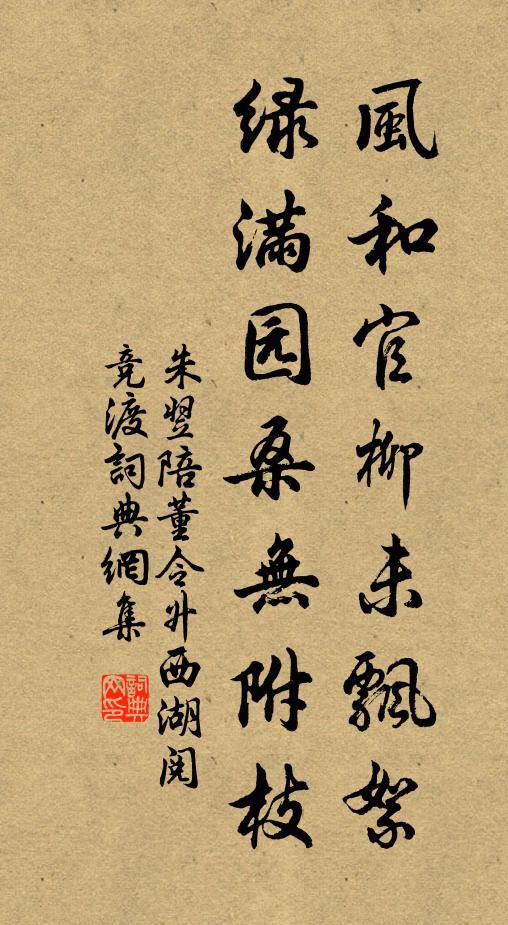 風和官柳未飄絮
緑滿园桑無附枝
朱翌陪董令升西湖阅
竞渡詞典網集
詞典
网印